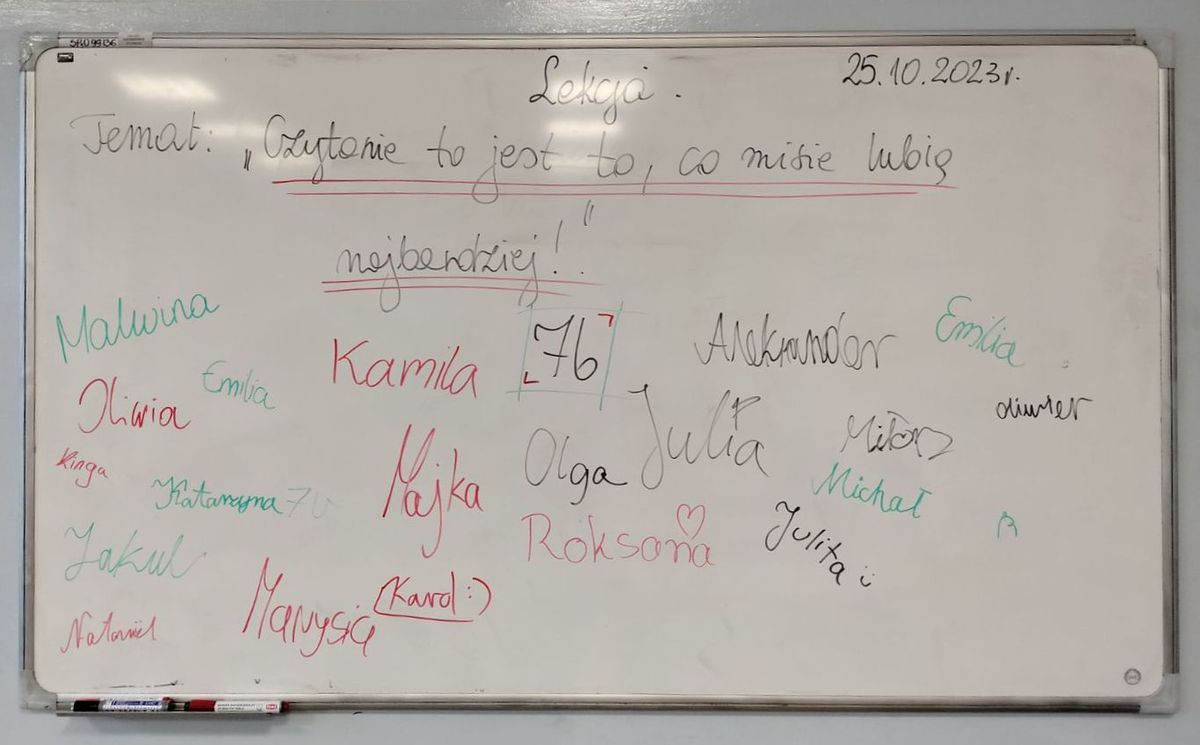 Lekcja.
25.10.2023r.
Temat: „Czytanie to jest to, co misie lubią
najbardziej!"
Malwina
Emilia
Kamila
7b
Aleksander
Emilia
Oliwia
Julia
Kinga
Katarzyna 7b
Majka
Olga
Miłosz
Michał
Jakub
Roksana
Julita
Nataniel
Marysia
(Karol :)